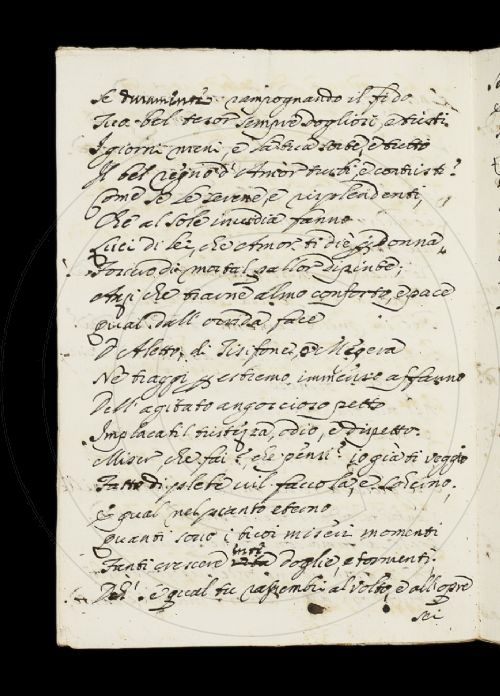 Se duramenti rampognando il fido
Tuo bel tesor sempre dogliosi, e tristi
I giorni meni, e
Il bel regno d'Amor turbi, e contristi?
Come se le serene, e risplendenti,
Che al Sole invidia fanno
Luci di lei, che Amor ti diè per donna,
mortal pallor dipinte;
Anzi che trarne almo conforto, e pace
Qual dall' orrida face
D'Aletto, di Tisifone, o Megera
Ne traggi per estremo immenso affanno
Dell' agitato angoscioso petto
Implacabil tristezza, odio, e dispetto.
Miser, che fai? che pensi? io già ti veggio
Fatto di plebe vil favola, e
E qual nel pianto eterno
Quanti sono i tuoi miseri momenti
Tanti crescere doglie, e tormenti.
Deh! e qual tu rassembri al volto, e all'opre
sei